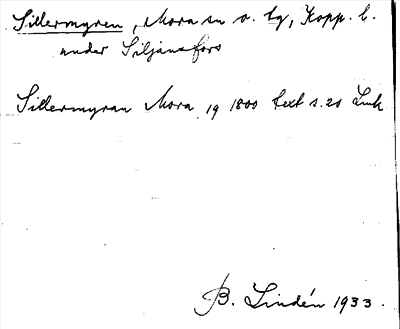 Sillermyren, Mora sn o. tg, Kopp. l.
under Siljansfors
Sillermyran Mora 19 1800 text s. 20 Link
B. Lindén 1933.